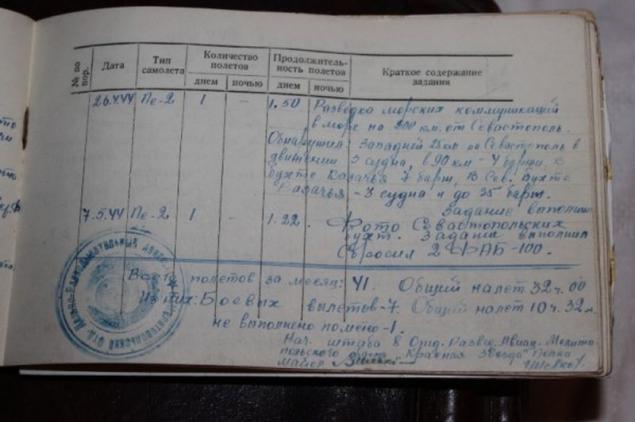 № по пор.
Дата
Тип самолета
Количество полетов
днем
ночью
Продолжительность полетов
днем
ночью
Краткое содержание задания
Пе-2 1 – 1.50 Разведка морских коммуникаций
в море на 200 км. от Севастополь.
Обнаружил: Западней 25 км Севастополь в
движении 3 судна, в 90 км - 4 В
бухте Казачья 7 барж, В Сев. бухте
Казачья - 3 судна и до 35 барж.
Задание выполнил
7.5.44 Пе-2 1 – 1.22. Фото Севастопольских
бухт. Задание выполнил
Сбросил 2 ФАБ-100.
Всего полетов за месяц: Общий налет 32 ч. 00
Из них: Боевых вылетов-7. Общий налет 10 ч. 32 м.
не выполнено -1.
Нач. штаба 8 Отд. Развед. Авиац. Мелито
польского "Красная Звезда" Полка
майор